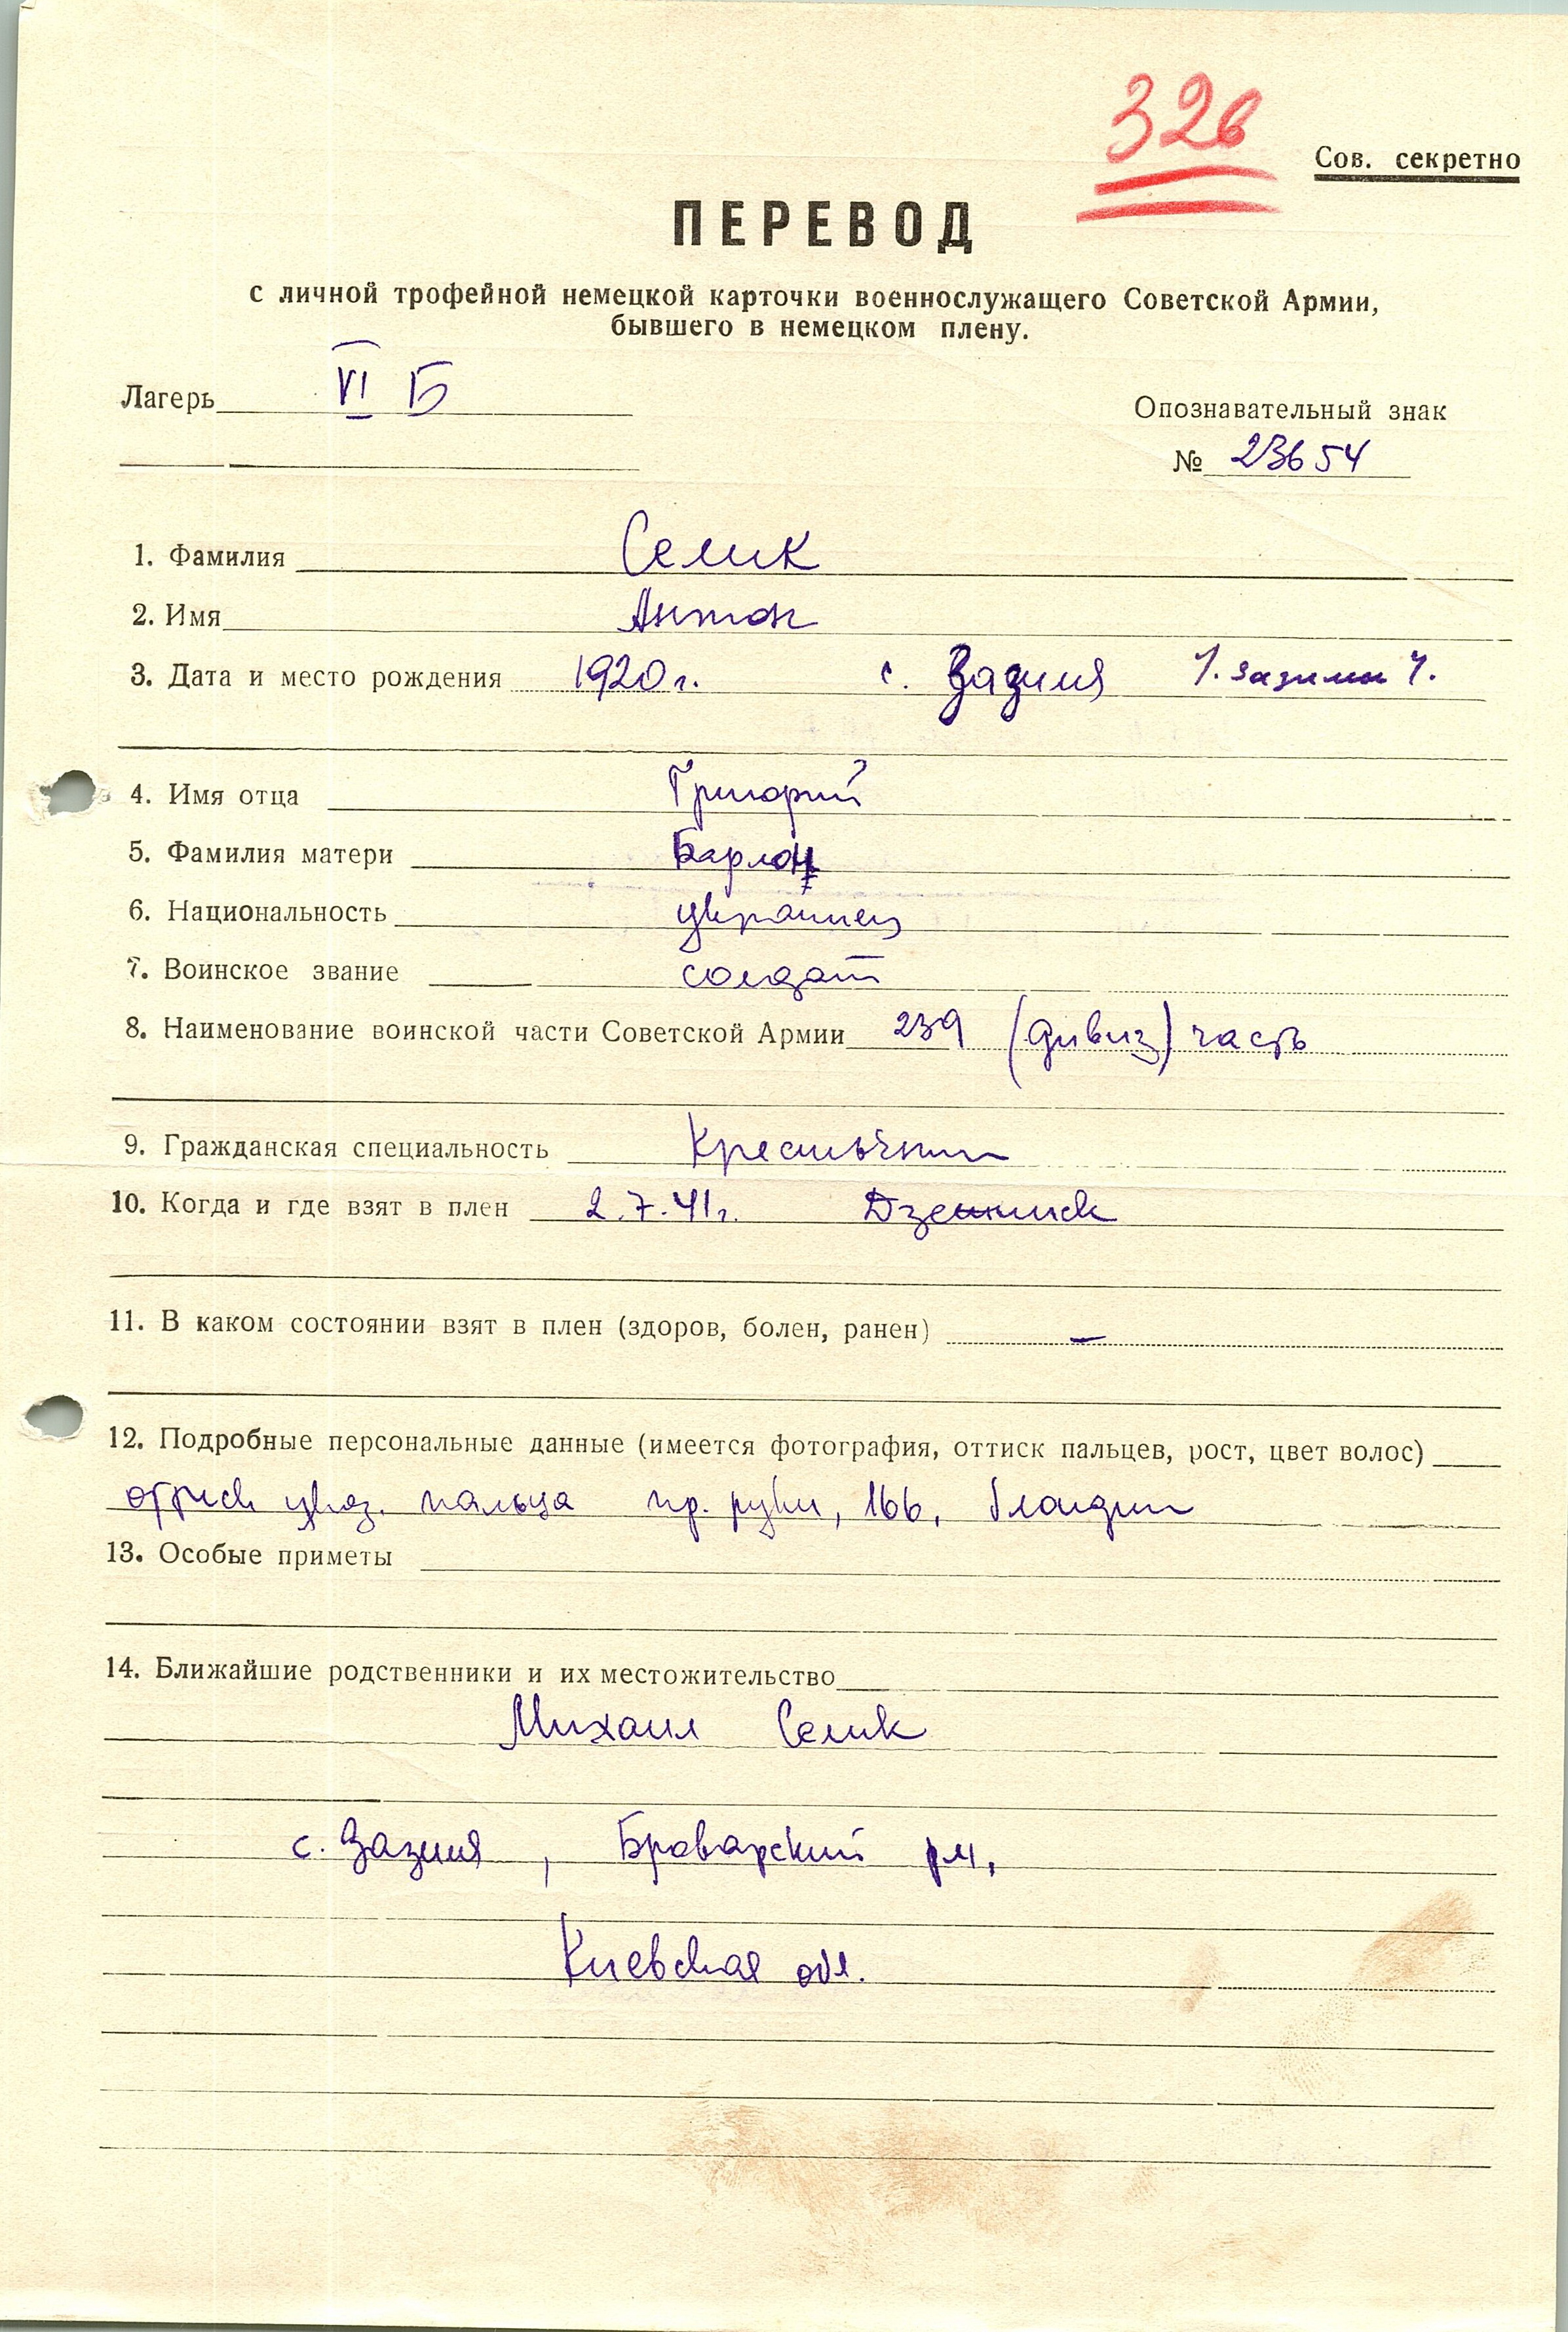 326
Сов. секретно
ПЕРЕВОД
с личной трофейной немецкой карточки военнослужащего Советской Армии,
бывшего в немецком плену.
Лагерь VI Б
Опознавательный знак
№ 23654
1. Фамилия Селик
2. Имя Антон
3. Дата и место рождения 1920 г. с. Зазимя
4. Имя отца Григорий
5. Фамилия матери
6. Национальность украинец
7. Воинское звание солдат
8. Наименование воинской части Советской Армии 239 (дивиз) часть
9. Гражданская специальность Крестьянин
10. Когда и где взят в плен 2.7.41г.
11. В каком состоянии взят в плен (здоров, болен, ранен) —
12. Подробные персональные данные (имеется фотография, оттиск пальцев, рост, цвет волос)
указ. пальца пр. руки, 166, блондин
13. Особые приметы
14. Ближайшие родственники и их местожительство
Михаил Селик
с. Зазимя, Броварский
Киевская обл.